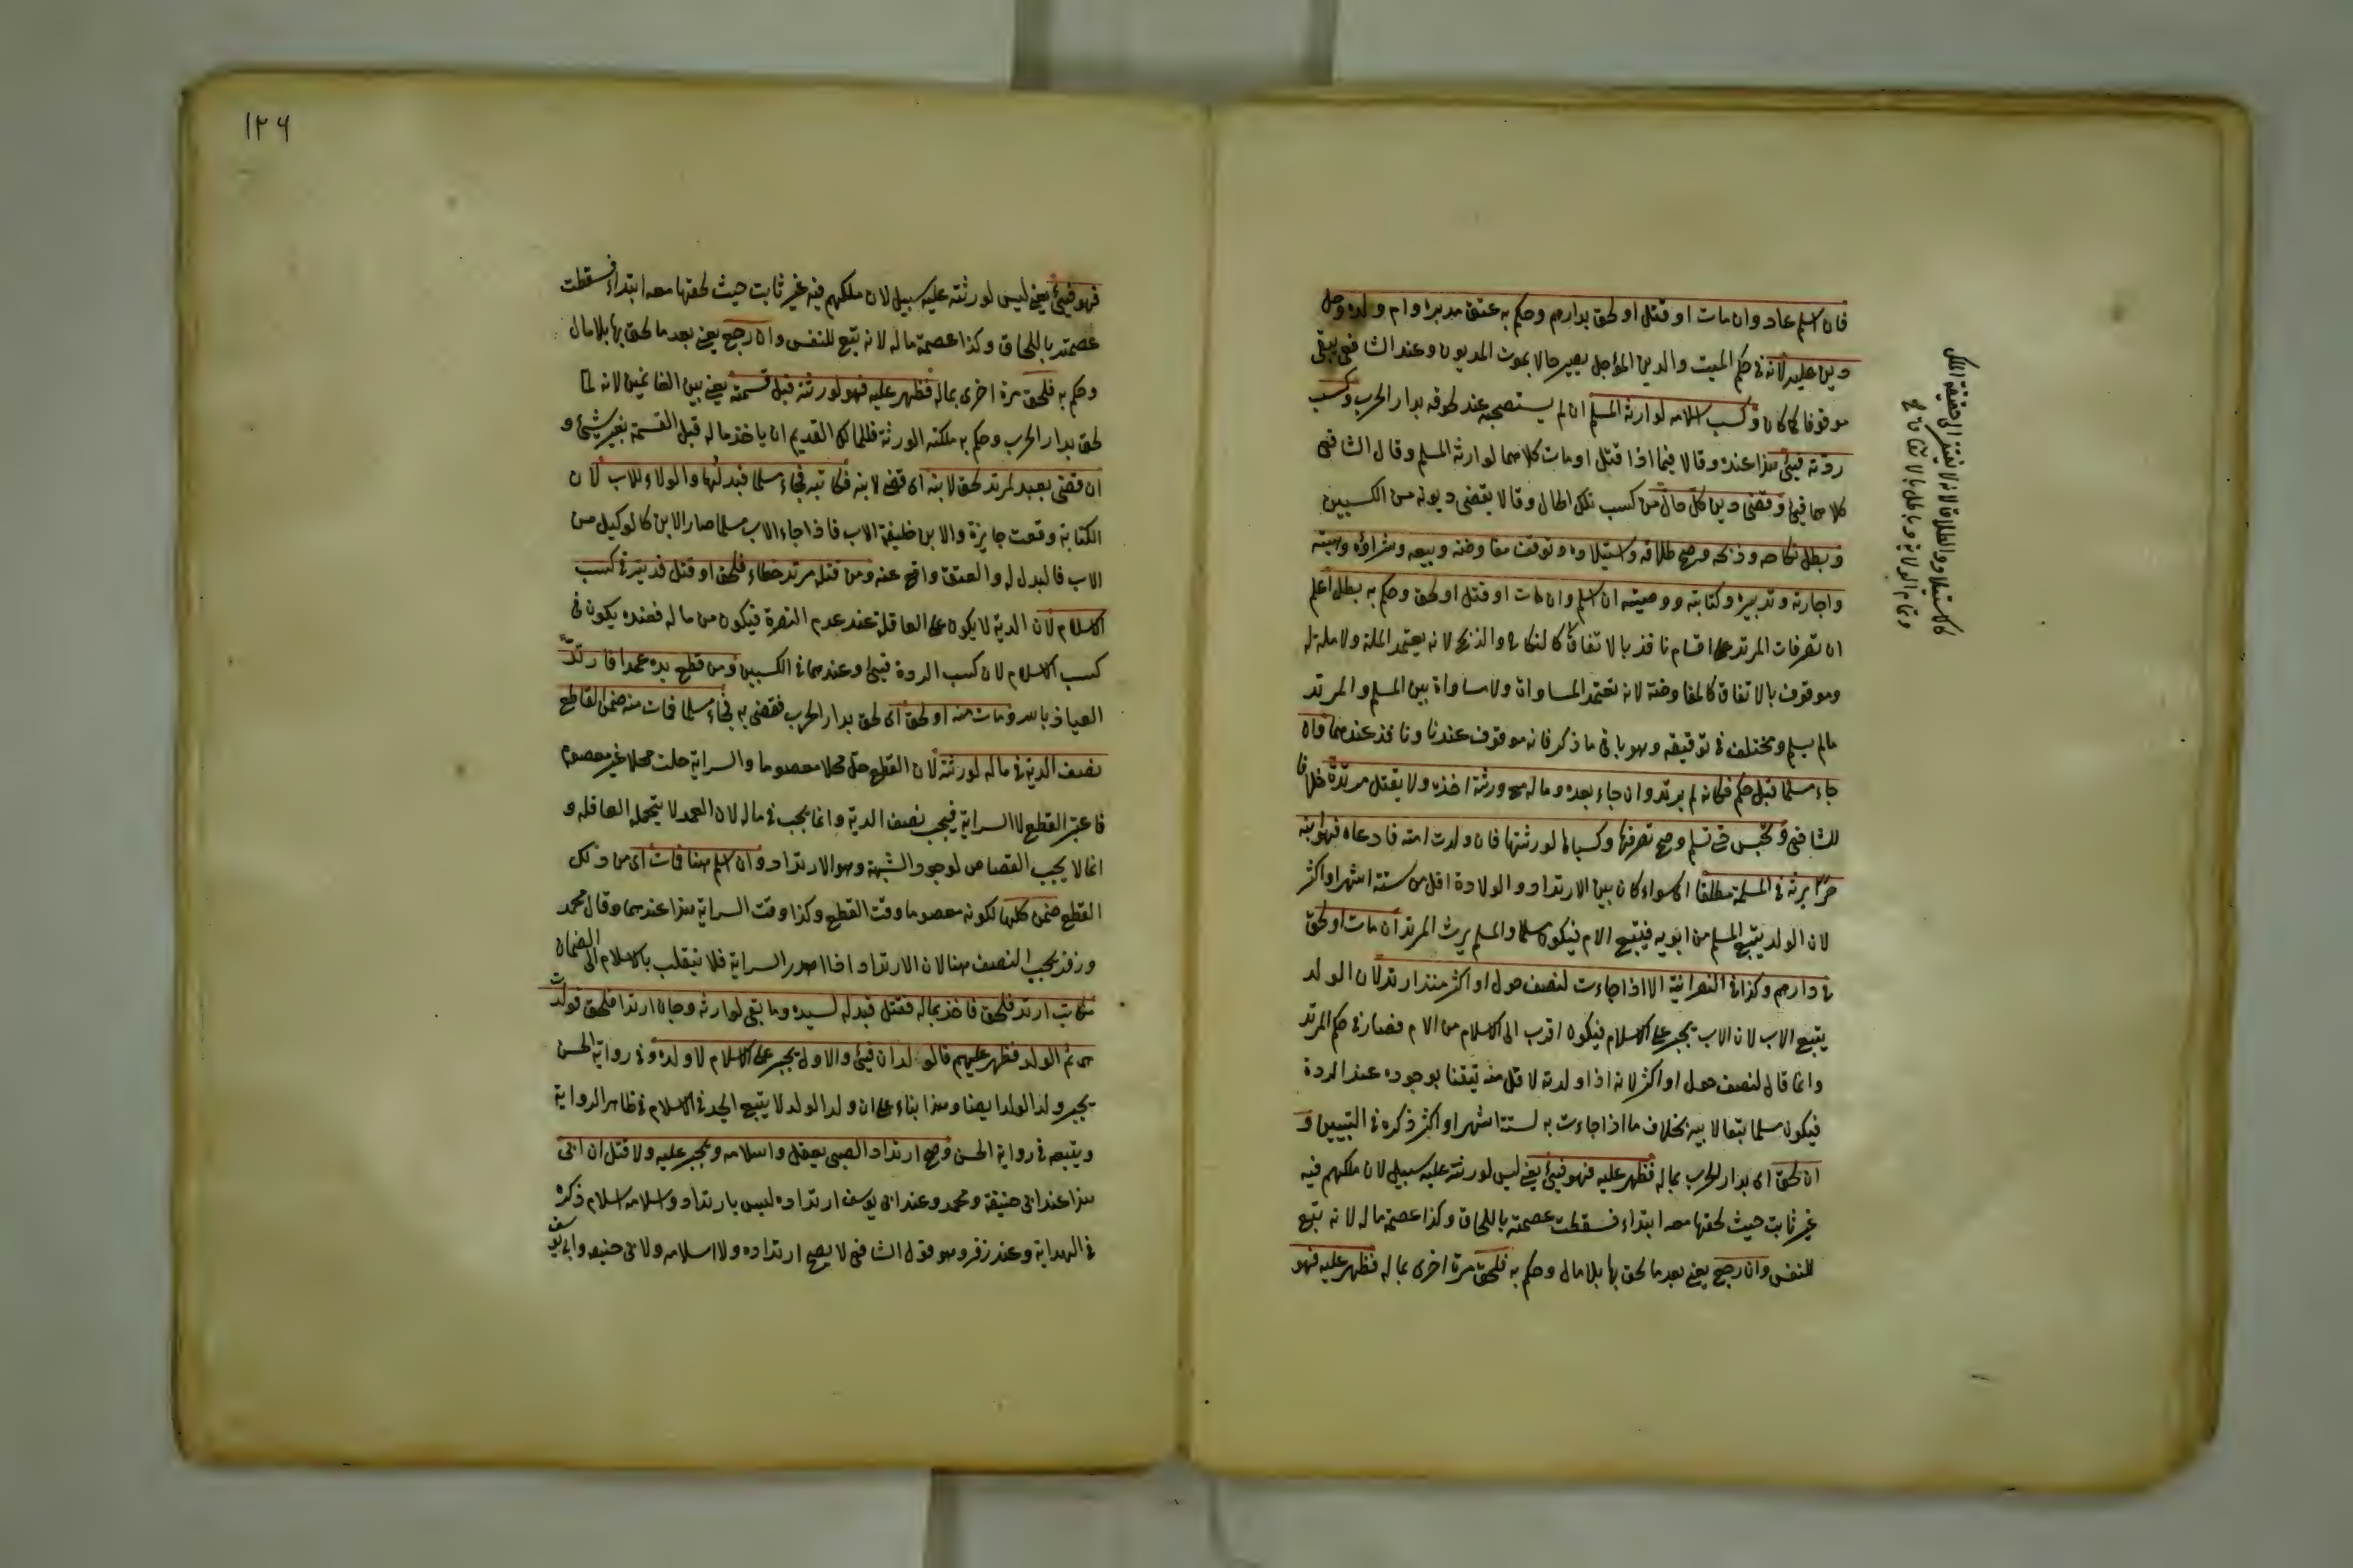 فان اسلم عاد وان مات او قتل او لحق بدارهم وحكم به عتق مدبره وام ولده وحل
دين عليه لانه في حكم الميت والدين المؤجل يصير حالا بموت المديون وعند الشافعي يبقى
موقوفا كما كان وكسب اسلامه لوارثه المسلم ان لم يستصحبه عند لحوقه بدار الحرب وكسب
ردته فيئ هذا عنده وقالا فيما اذا قتل او مات كلاهما لوارثه المسلم وقال الشافعي
كلاهما فيئ وقضى دين كل حال من كسب تلك الحال وقالا يقضى ديونه من الكسبين
وبطل نكاحه وذبحه وصح طلاقه واستيلاده وتوقف مفاوضته وبيعه وشراؤه وهبته
واجارته وتدبيره وكتابته ووصيته ان اسلم وان مات او قتل او لحق وحكم به بطل اعلم
ان تصرفات المرتد على اقسام نافذ بالاتفاق كالنكاح والذبح لانه يعتمد الملة ولا ملة له
وموقوف بالاتفاق كالمفاوضة لانه تعتمد المساواة ولا مساواة بين المسلم والمرتد
مالم يسلم ومختلف في توقيفه وهو باقي ما ذكر فانه موقوف عندنا ونافذ عندهما فان
جاء مسلما قبل حكم فكانه لم يرتد وان جاء بعده وماله مع ورثته اخذه ولا يقتل مرتدة خلافا
للشافعي وتحبس حتى تسلم وصح تصرفها وكسباها لورثتها فان ولدت امته فادعاه فهو ابنه
حرا يرثه في المسلمة مطلقا اي سواء كان بين الارتداد والولادة اقل من ستة اشهر او اكثر
لان الولد يتبع المسلم من ابويه فيتبع الام فيكون مسلما والمسلم يرث المرتد ان مات او لحق
في دارهم وكذا في النصرانية الا اذا جاءت لنصف حول او اكثر منذ ارتد لان الولد
يتبع الاب لان الاب يجبر على الاسلام فيكون اقرب الى الاسلام من الام فصار في حكم المرتد
وانما قال لنصف حول او اكثر لانه اذا ولدته لاقل منه تيقنا بوجوده عند الردة
فيكون مسلما تبعا لابيه بخلاف ما اذا جاءت به لستة اشهر او اكثر ذكره في التبيين و
ان لحق اي بدار الحرب بماله فظهر عليه فهو فيئ يعني ليس لورثته عليه سبيل لان ملكهم فيه
غير ثابت حيث لحقها معه ابتداء فسقطت عصمته باللحاق وكذا عصمة ماله لانه تبع
للنفس وان رجع يعني بعد ما لحق بها بلا مال وحكم به فلحق مرة اخرى بماله فظهر عليه فهو
كالاستيلاد والطلاق لانه لا يفتقر الى حقيقة الملك
وتمام الولاية وباطل بالاتفاق
١٢٦
فهو فيئ يعني ليس لورثته عليه سبيل لان ملكهم فيه غير ثابت حيث لحقها معه ابتداء فسقطت
عصمته باللحاق وكذا عصمة ماله لانه تبع للنفس وان رجع يعني بعد ما لحق بها بلا مال
وحكم به فلحق مرة اخرى بماله فظهر عليه فهو لورثته قبل قسمته يعني بين الغانمين لانه لما
لحق بدار الحرب وحكم به ملكته الورثة فللمالك القديم ان ياخذ ماله قبل القسمة بغير شيئ و
ان قضى بعبد لمرتد لحق لابنه اي قضى لابنه فكاتبه فجاء مسلما فبدلها والولاء للاب لان
الكتابة وقعت جايزة والابن خليفة الاب فاذا جاء الاب مسلما صار الابن كالوكيل من
الاب فالبدل له والعتق واقع عنه ومن قتله مرتد خطاء فلحق او قتل فديته في كسب
الاسلام لان الدية لا يكون على العاقلة عند عدم النصرة فيكون من ماله فعنده يكون في
كسب الاسلام لان كسب الردة فيئ وعندهما في الكسبين ومن قطع يده عمدا فارتد
العياذ بالله ومات منه او لحق اي لحق بدار الحرب فقضى به فجاء مسلما فمات منه ضمن القاطع
نصف الدية في ماله لورثته لان القطع حل محلا معصوما والسراية حلت محلا غير معصوم
فاعتبر القطع لا السراية فيجب نصف الدية وانما يجب في ماله لان العمد لا يتحمله العاقلة و
انما لا يجب القصاص لوجود الشبهة وهو الارتداد وان اسلم هنا فمات اي من ذلك
القطع ضمن كلها لكونه معصوما وقت القطع وكذا وقت السراية هذا عندهما وقال محمد
وزفر يجب النصف هنا لان الارتداد اذا اهدر السراية فلا ينقلب بالاسلام الى الضمان
مكاتب ارتد فلحق فاخذ بماله فقتل فبدله لسيده وما بقي لوارثه وزوجان ارتدا فلحق فولدت
هي ثم الولد فظهر عليهم فالولدان فيئ والاول يجبر على الاسلام لا ولده وفي رواية الحسن
يجبر ولد الولد ايضا وهذا بناء على ان ولد الولد لا يتبع الجد في الاسلام في ظاهر الرواية
ويتبعه في رواية الحسن وصح ارتداد الصبي يعقل واسلامه ويجبر عليه ولا قتل ان ابى
هذا عند ابي حنيفة ومحمد وعند ابي يوسف ارتداده ليس بارتداد واسلامه اسلام ذكره
في الهداية وعند زفر وهو قول الشافعي لا يصح ارتداده ولا اسلامه ولابي حنيفه وابي يوسف